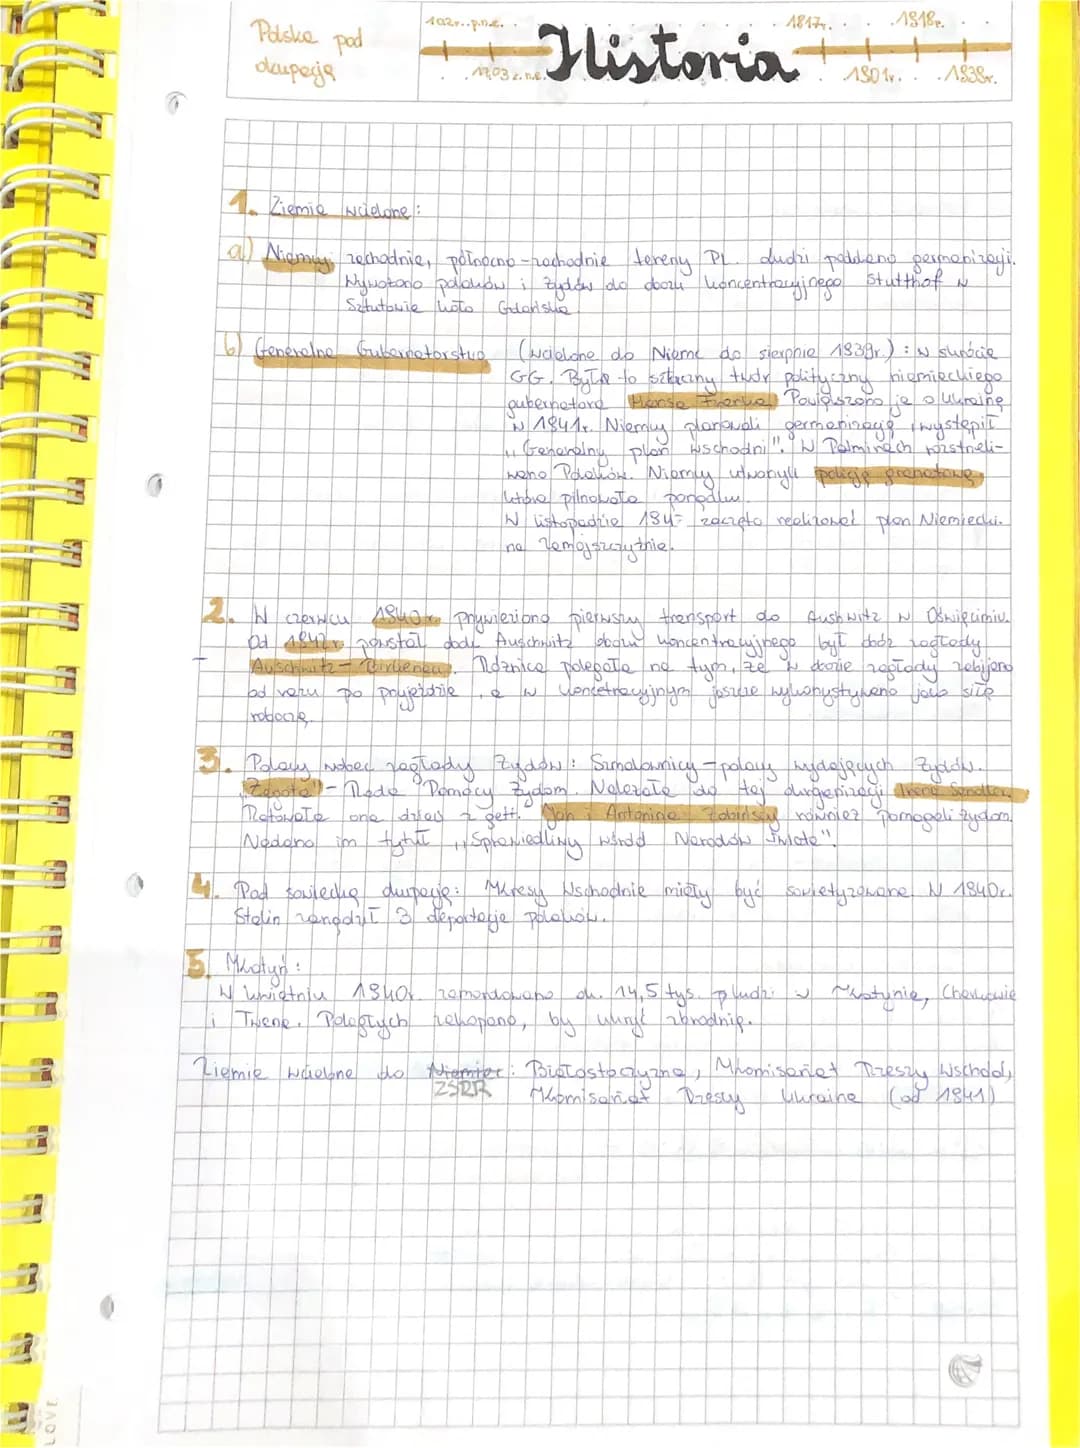 Polska pod
okupacją
102r. p.n.e.
17.03 r. n.e.
Historia
1817r.
1918r.
1801r.
1938r.
1. Ziemie wcielone:
a) Niemcy: zachodnie, północno-zachodnie tereny PL. Ludzi poddano germanizacji.
Wywożono polaków i żydów do obozu koncentracyjnego Stutthof w
Sztutowie koło Gdańska
b) Generalne Gubernatorstwo (wcielone do Niemc do sierpnia 1939r.): w skrócie
GG. Był to sztuczny twór polityczny niemieckiego
gubernatora Hansa Franka. Powiększono je o Ukrainę
w 1941r. Niemcy planowali germanizację, wystąpił
„Generalny plan wschodni". W Palmirach rozstrzeli-
wano Polaków. Niemcy utworzyli policję granatową
która pilnowała porządku.
W listopadzie zaczęto realizować plan Niemiecki.
na zamojszczyźnie.
2. W czerwcu 1940r. przywieziono pierwszy transport do Aushwitz w Oświęcimiu.
Od 1942r. powstał obok Auschwitz obozu koncentracyjnego był obóz zagłady
Auschwitz - Birkenau. Różnica polegała na tym, że w obozie zagłady zabijano
od razu po przyjeździe, a w koncetracyjnym jeszcze wykorzystywano jako siłę
roboczą.
3. Polacy wobec zagłady żydów: Szmalcownicy - polacy wydających żydów.
„Żegota" - Rada Pomocy żydom. Należała do tej organizacji Irena Sendler.
Ratowała ona dzieci z gett. Jan i Antonina Żabińscy również pomogali żydom.
Nadano im tytuł „Sprawiedliwy wśród Narodów Świata".
4. Pod sowiecką okupacją: Kresy Wschodnie miały być sowietyzowane. W 1940r.
Stalin zarządził 3 deportacje polaków.
5. Katyń:
W kwietniu 1940r. zamordowano ok. 14,5 tys. ludzi w Katynie, Charkowie
i Twerze. Poległych zakopano, by ukryć zbrodnię.
Ziemie wcielone do Niemiec: Białostocczyzna, Komisariat Rzeszy Wschód,
ZSRR Komisariat Rzeszy Ukraina (od 1941)
LOVE